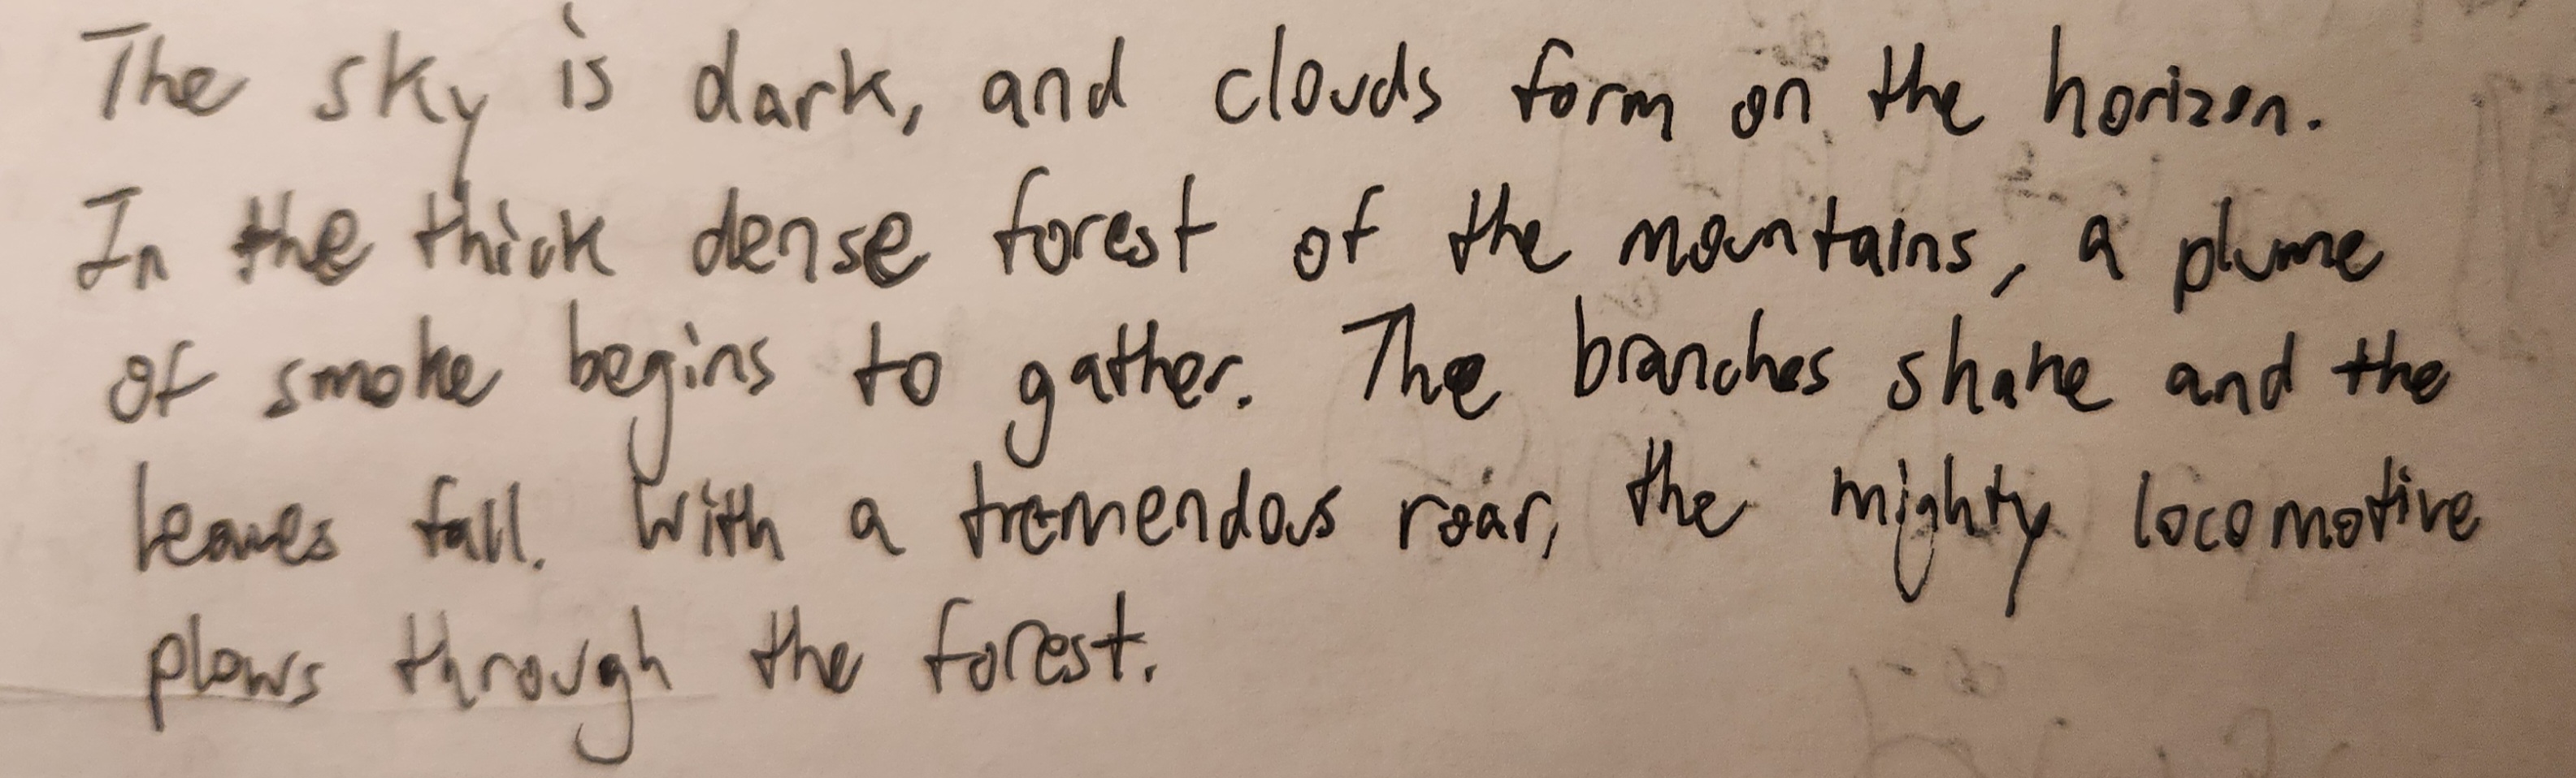 The sky is dark, and clouds form on the horizon.
In the thick dense forest of the mountains, a plume
of smoke begins to gather. The branches shake and the
leaves fall. With a tremendous roar, the mighty locomotive
plows through the forest.